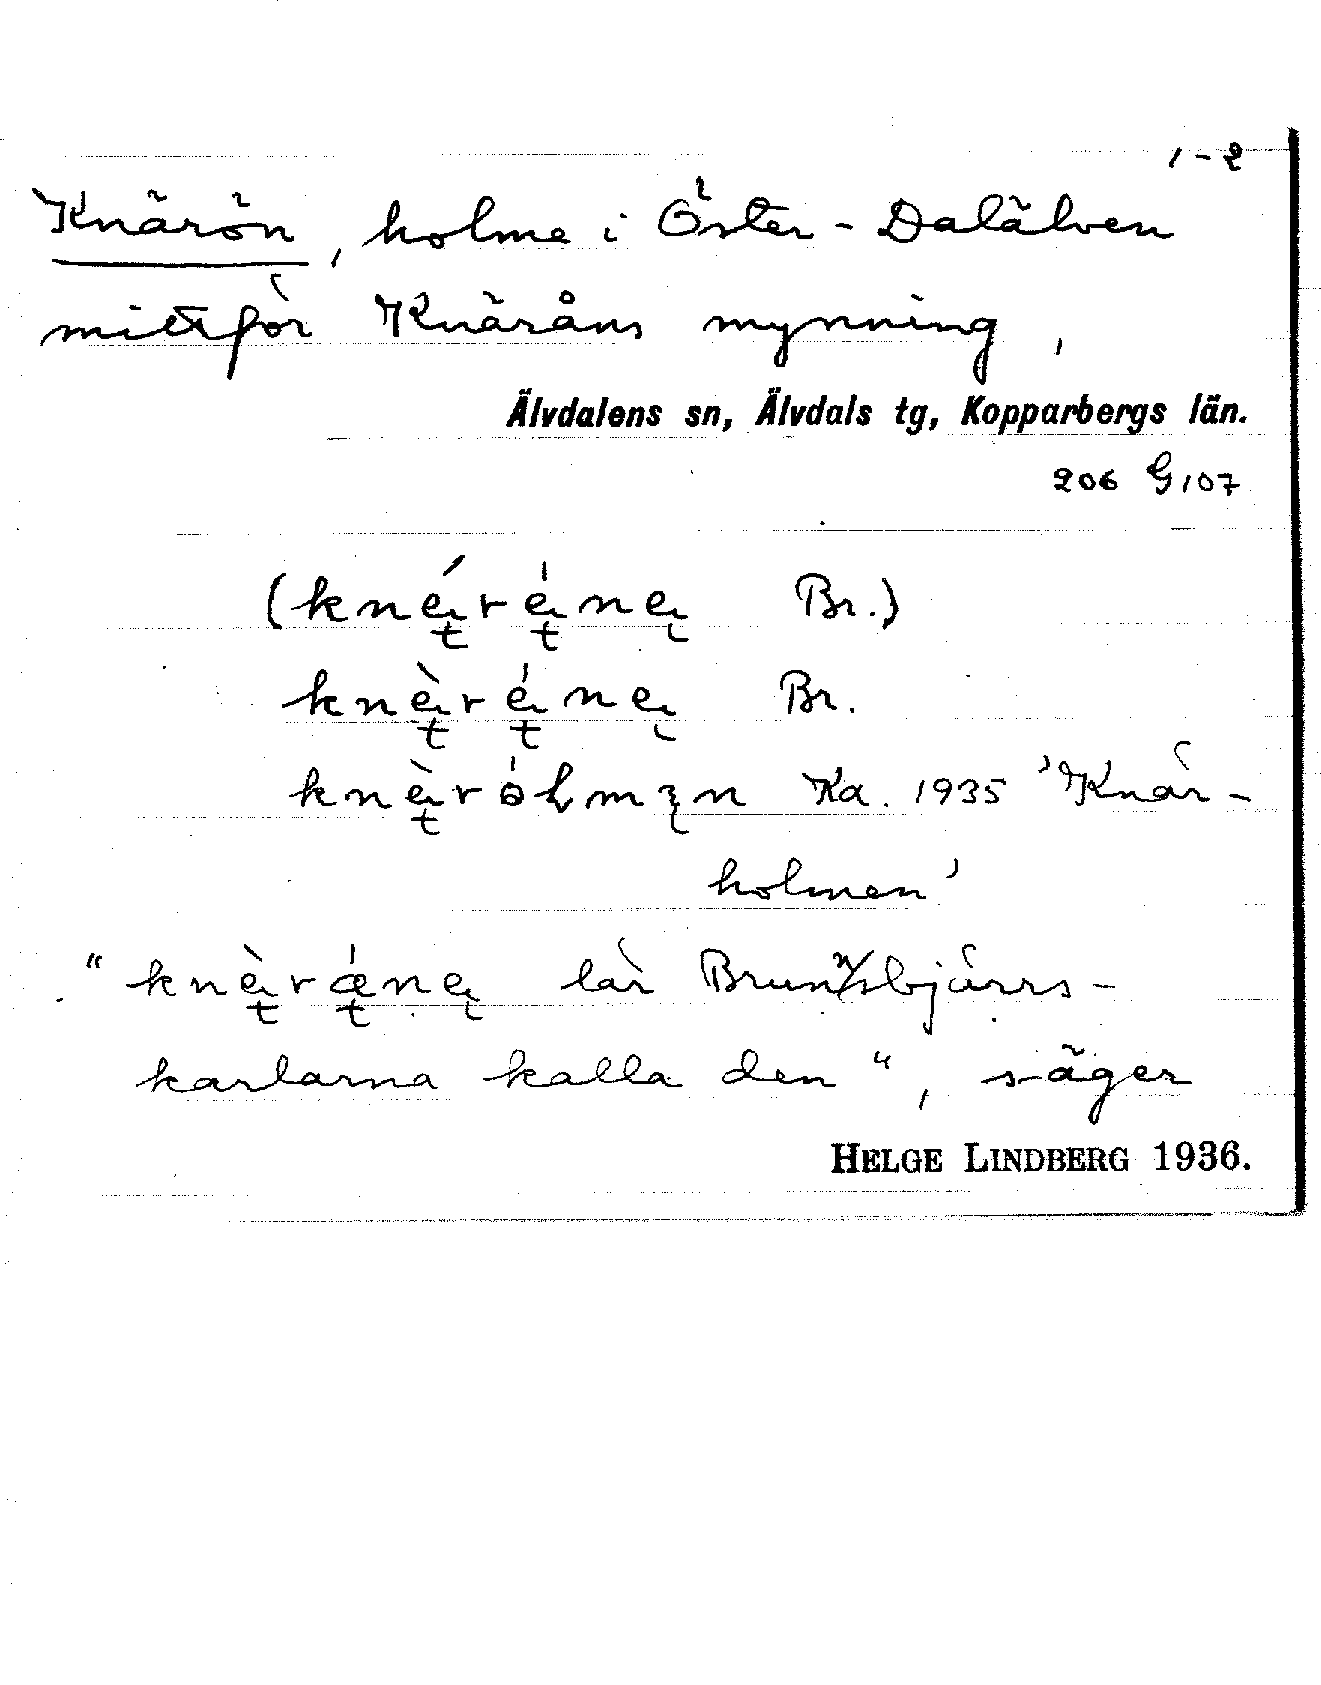 1-2
Knärön, holme i Öster-Dalälven
mittför Knäråns mynning,
Älvdalens sn, Älvdals tg, Kopparbergs län.
206 G107
Br.)
Br.
Ka. 1935 'Knär-
holmen'
" lär Brunnsbjärrs-
karlarna kalla den", säger
HELGE LINDBERG 1936.